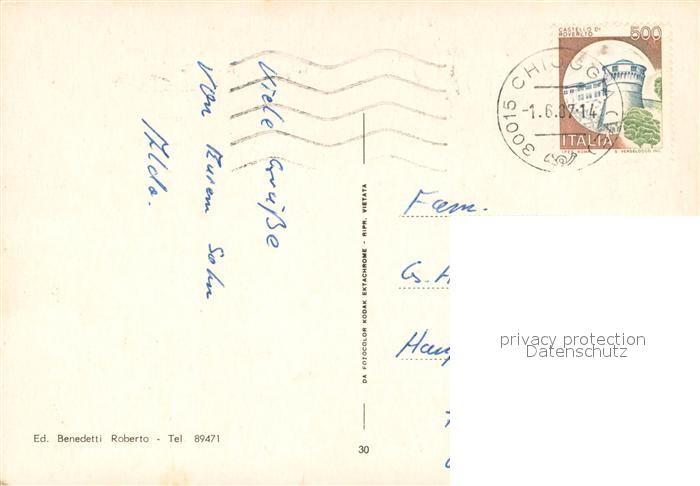 CASTELLO DI
ROVERETO
500
30015 CHIOGG
-1.6.87-14
ITALIA
Viele Grüße
von Eurem Sohn
Aldo.
Fam.
DA FOTOCOLOR KODAK EKTACHROME - RIPR. VIETATA
privacy protection
Datenschutz
Ed. Benedetti Roberto - Tel 89471
30